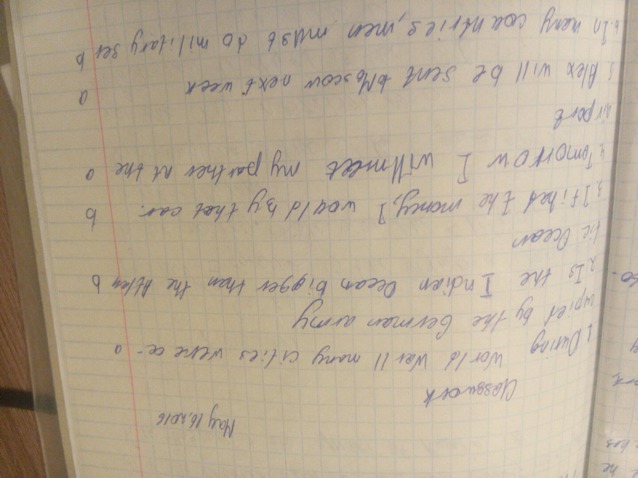 May 16, 2016
Classwork
1. During World War II many cities were oc- a
cupied by the German army
2. Is the Indian Ocean bigger than the Atlan b
tic Ocean
3. If I had the money, I would by that car. b
4. Tomorrow I will meet my partner at the a
airport
5. Alex will be sent to Moscow next week a
6. In many countries, men must do military ser b